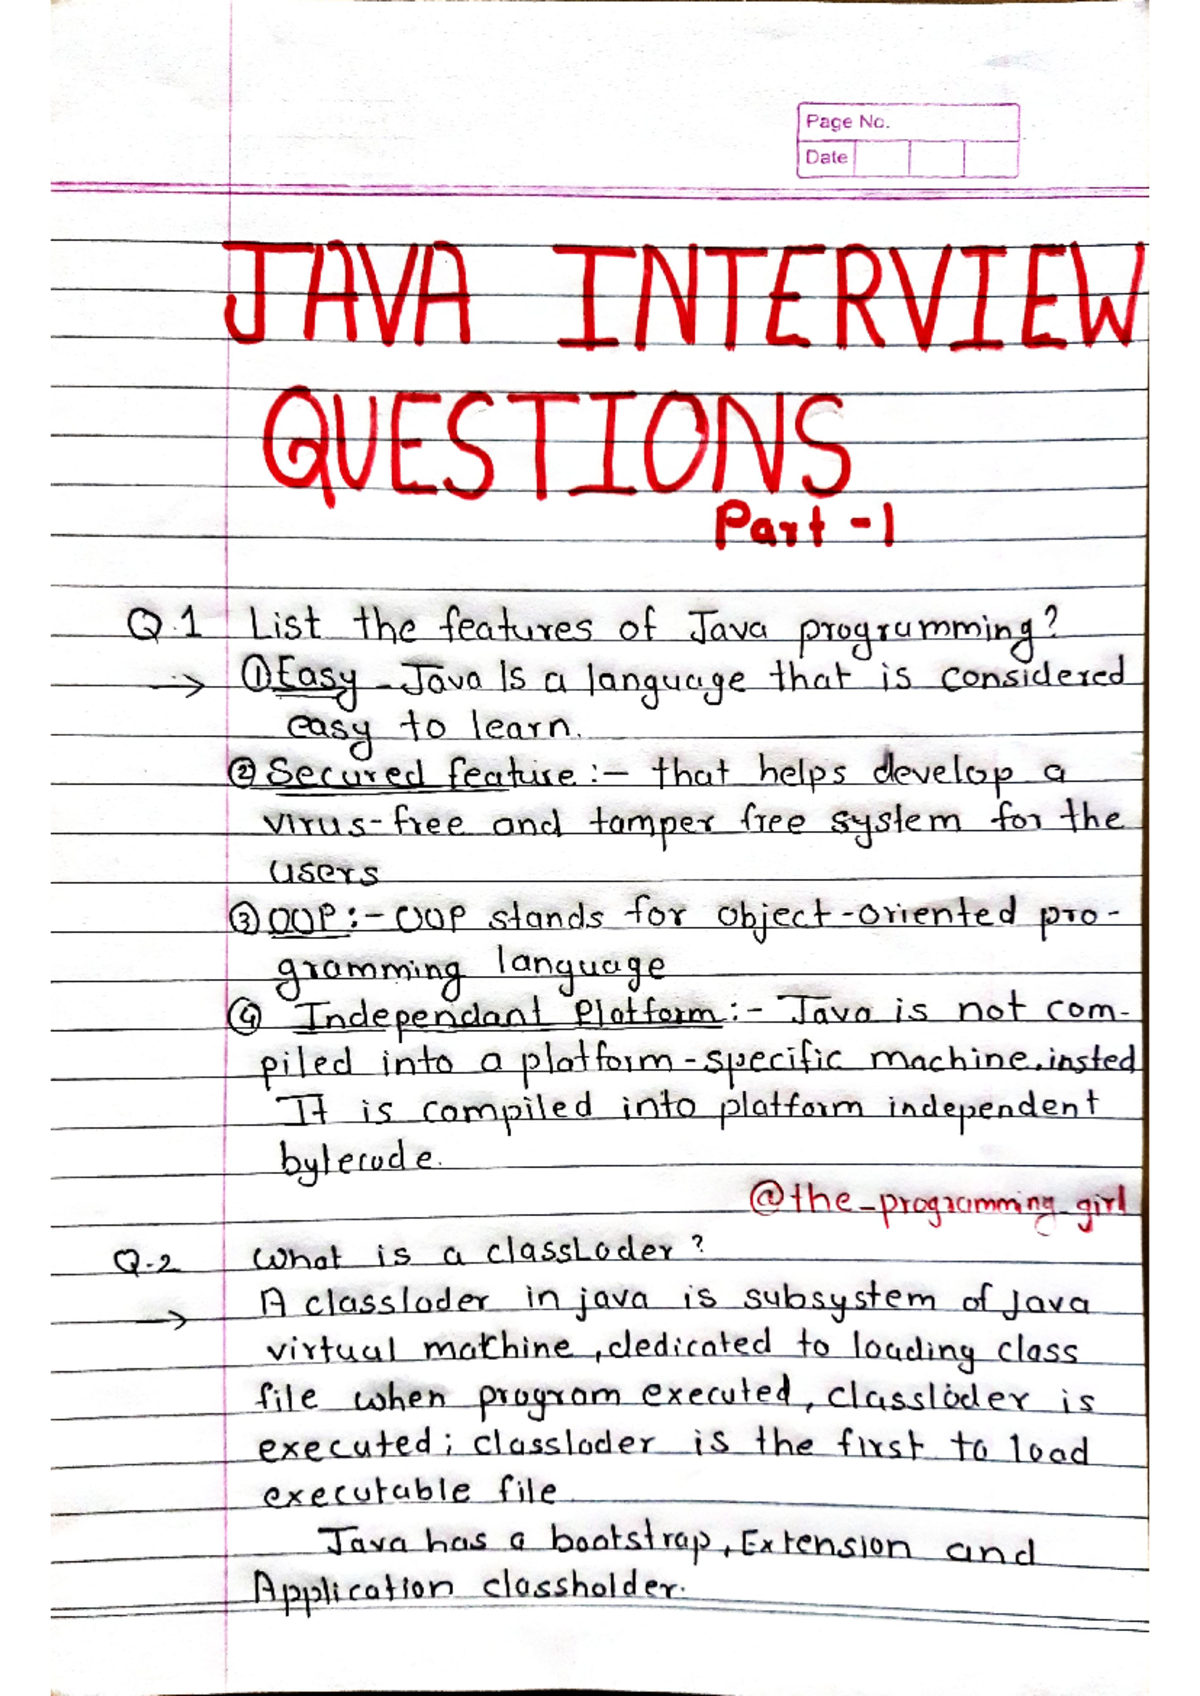 Page No.
Date
JAVA INTERVIEW
QUESTIONS
Part -1
Q.1 List the features of Java programming?
→ ① Easy - Java Is a language that is considered
easy to learn.
② Secured feature :- that helps develop a
virus-free and tamper free system for the
users
③ OOP :- OOP stands for object-oriented pro-
gramming language
④ Independant Platform :- Java is not com-
piled into a platform-specific machine. insted
It is compiled into platform independent
bytecode.
@the_programming_girl
Q.2 What is a classLoder ?
→ A classloder in java is subsystem of Java
virtual mathine, dedicated to loading class
file when program executed, classloder is
executed; classloder is the first to load
executable file.
Java has a bootstrap, Extension and
Application classholder.